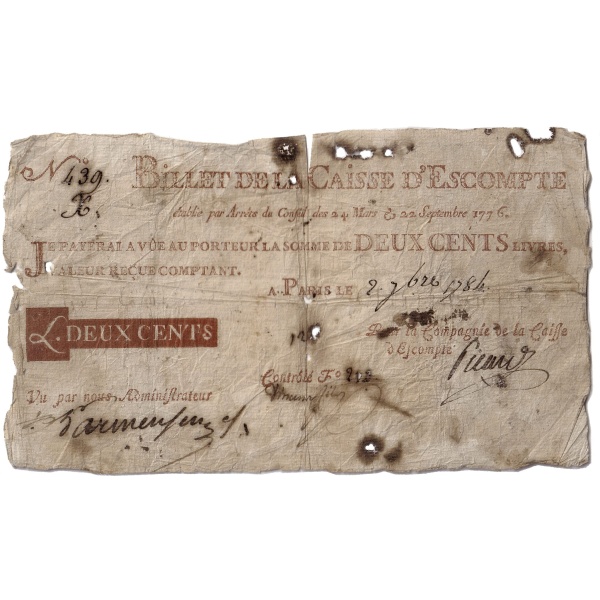 N° 439. BILLET DE LA CAISSE D'ESCOMPTE
X.
établie par Arrêts du Conseil des 24 Mars & 22 Septembre 1776.
JE PAYERAI A VÛE AU PORTEUR LA SOMME DE DEUX CENTS LIVRES,
VALEUR REÇUE COMPTANT.
A PARIS LE 2 7bre 1784.
L. DEUX CENTS
Pour la Compagnie de la Caisse
d'Escompte
Picard
Contrôlé F°
Vu par nous Administrateur